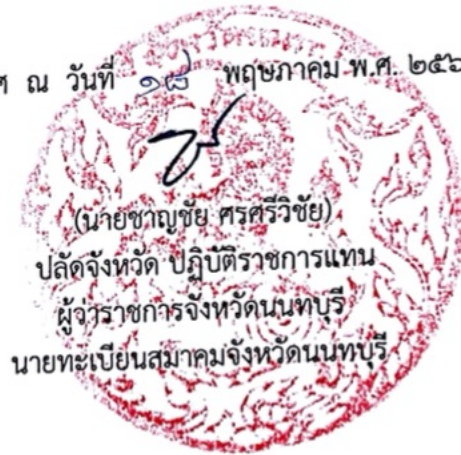 ศ ณ วันที่ ๑๘ พฤษภาคม พ.ศ. ๒๕๖
(นายชาญชัย ศรศรีวิชัย)
ปลัดจังหวัด ปฏิบัติราชการแทน
ผู้ว่าราชการจังหวัดนนทบุรี
นายทะเบียนสมาคมจังหวัดนนทบุรี